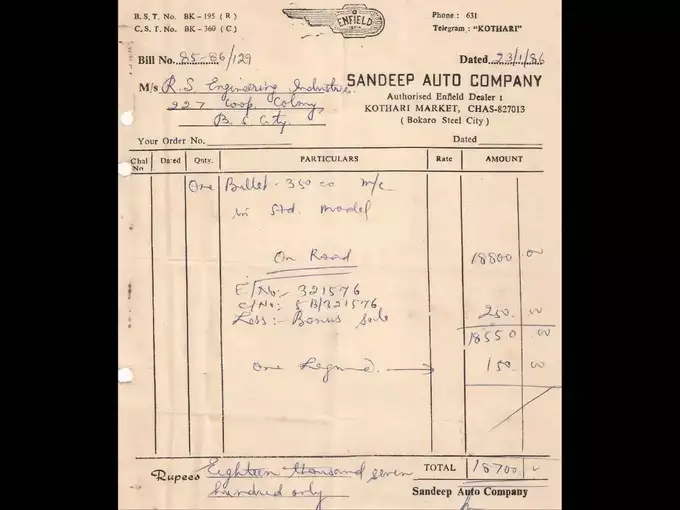 B. S. T. No. BK - 195 ( R )
C. S. T. No. BK - 360 ( C )
ENFIELD
Phone : 631
Telegram : "KOTHARI"
Bill No. 85-86/129
Dated 23/1/86
M/s R.S. Engineering Industries
227 Coop. Colony
B. S. City.
SANDEEP AUTO COMPANY
Authorised Enfield Dealer :
KOTHARI MARKET, CHAS-827013
( Bokaro Steel City )
Your Order No.
Dated
Chal No Dated Qnty. PARTICULARS Rate AMOUNT
One Bullet - 350 cc m/c
in Std. model
On Road 18800 . 00
E/No:- 321576
C/No: 5 B/321576
Less:- Bonus sale 250 . 00
18550 . 00
One Legguard. → 150 . 00
Rupees Eighteen thousand seven
hundred only
TOTAL 18700
Sandeep Auto Company